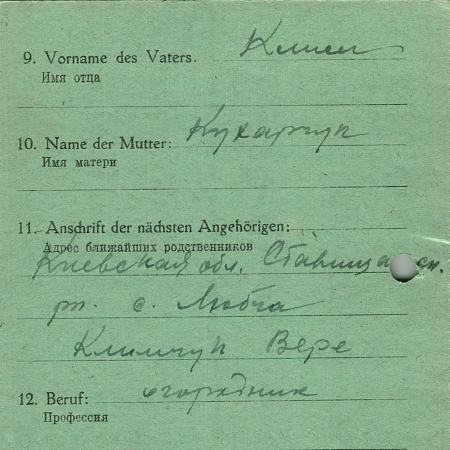 9. Vorname des Vaters. Клим
Имя отца
10. Name der Mutter: Кухарчук
Имя матери
11. Anschrift der nächsten Angehörigen:
Адрес ближайших родственников
Киевская обл. Ставищанск.
рн. с. Любча
Климчук Вере
12. Beruf: огородник
Профессия